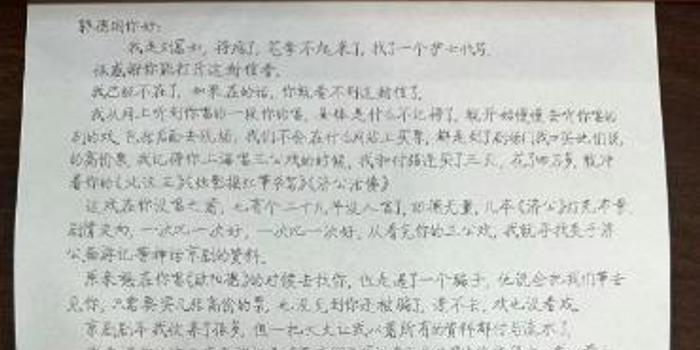 郭德纲你好:
我是刘富如,得病了,笔拿不起来了,找了一个护士代写.
很感谢你能打开这封信看.
我已经不在了,如果在的话,你就看不到这封信了.
我从网上听到你唱的一段你的唱,具体是什么不记得了,就开始慢慢去听你唱的
别的戏,包括后面去现场,我们不会在什么网站上买票,都是到了剧场门我口买他们说
的高价票,我记得你上海唱三公戏的时候,我和付强连买了三天,花了四万多,就冲
着你的《沈汉王》《烛影摇红》《济公活佛》
这戏在你没唱之前,也有个二十几年没人唱了,功德无量,几本《济公》灯光布景
剧情走向,一次比一次好,一次比一次好,从看完你的三公戏,我就寻找关于济
公西游记等神话京剧的资料.
原来想在你唱《欧阳德》的时候去找你,但是遇了一个骗子,他说会把我们带去
见你,只需要买几张高价的票,也没见到你还被骗了,进不去,戏也没看成.
京剧剧本我收集了很多,但一把大火让我以着所有的资料都付与流水了,